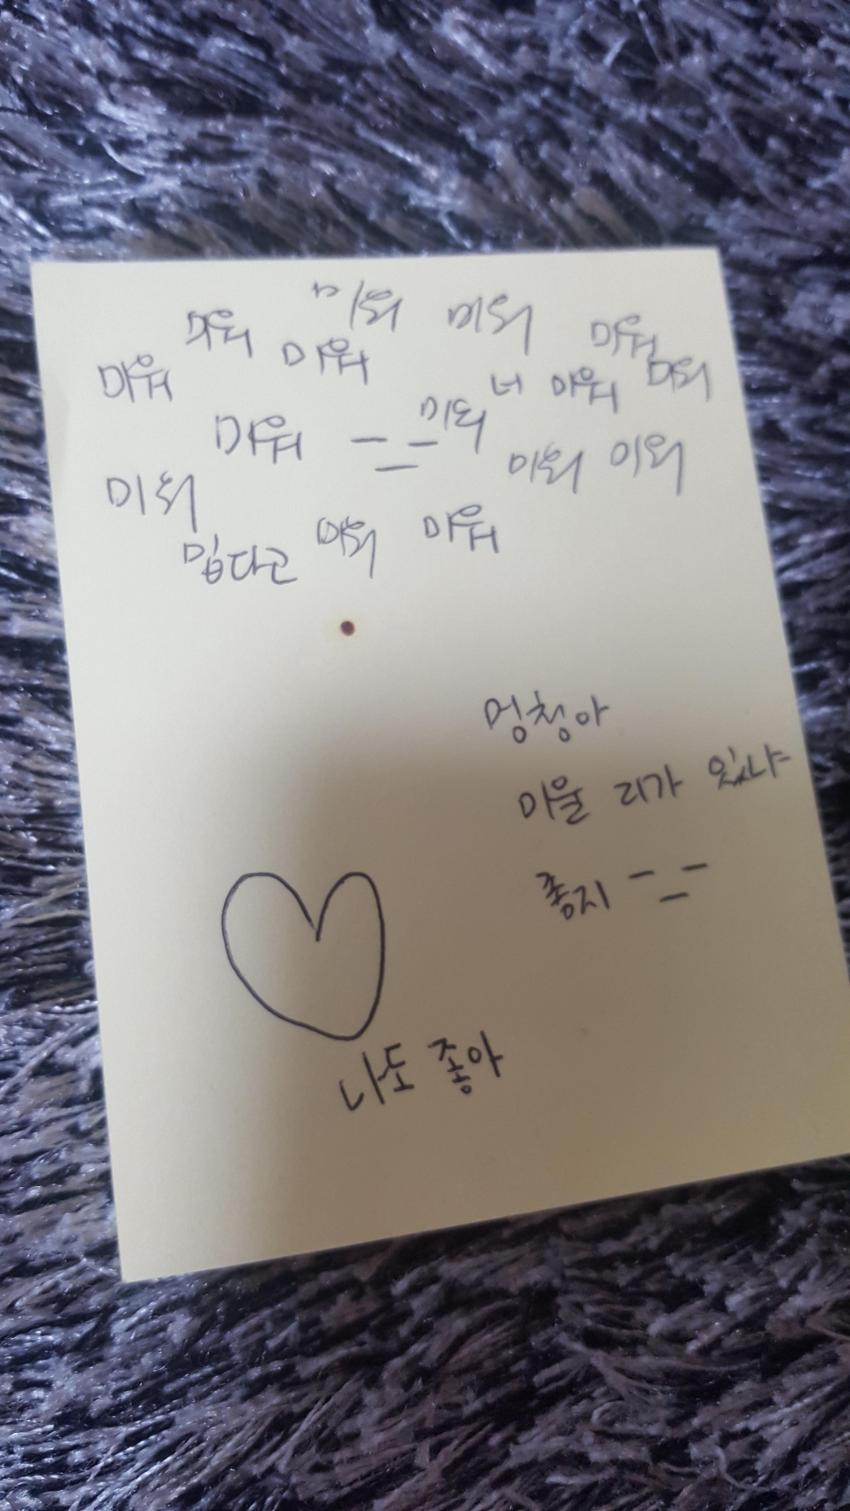 미워 미워 미워 미워
미워 미워 너 미워 미워
미워 -_- 미워
미워 미워 미워
밉다고 미워 미워
멍청아
미울 리가 있냐
좋지 -_-
나도 좋아